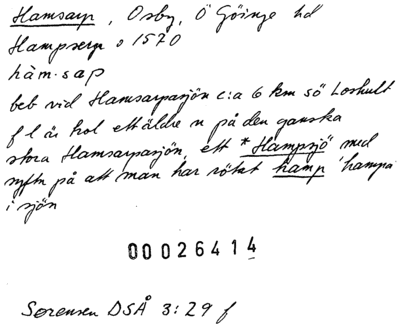 Hamsarp, Osby, Ö Göinge hd
Hampserp o 1570
hàm.sap
beb vid Hamsarpasjön c:a 6 km sö Loshult
f l är hol ett äldre n på den ganska
stora Hamsarpasjön, ett *Hampsjö med
syftn på att man har rötat hamp 'hampa'
i sjön
00026414
Sørensen DSÅ 3:29 f